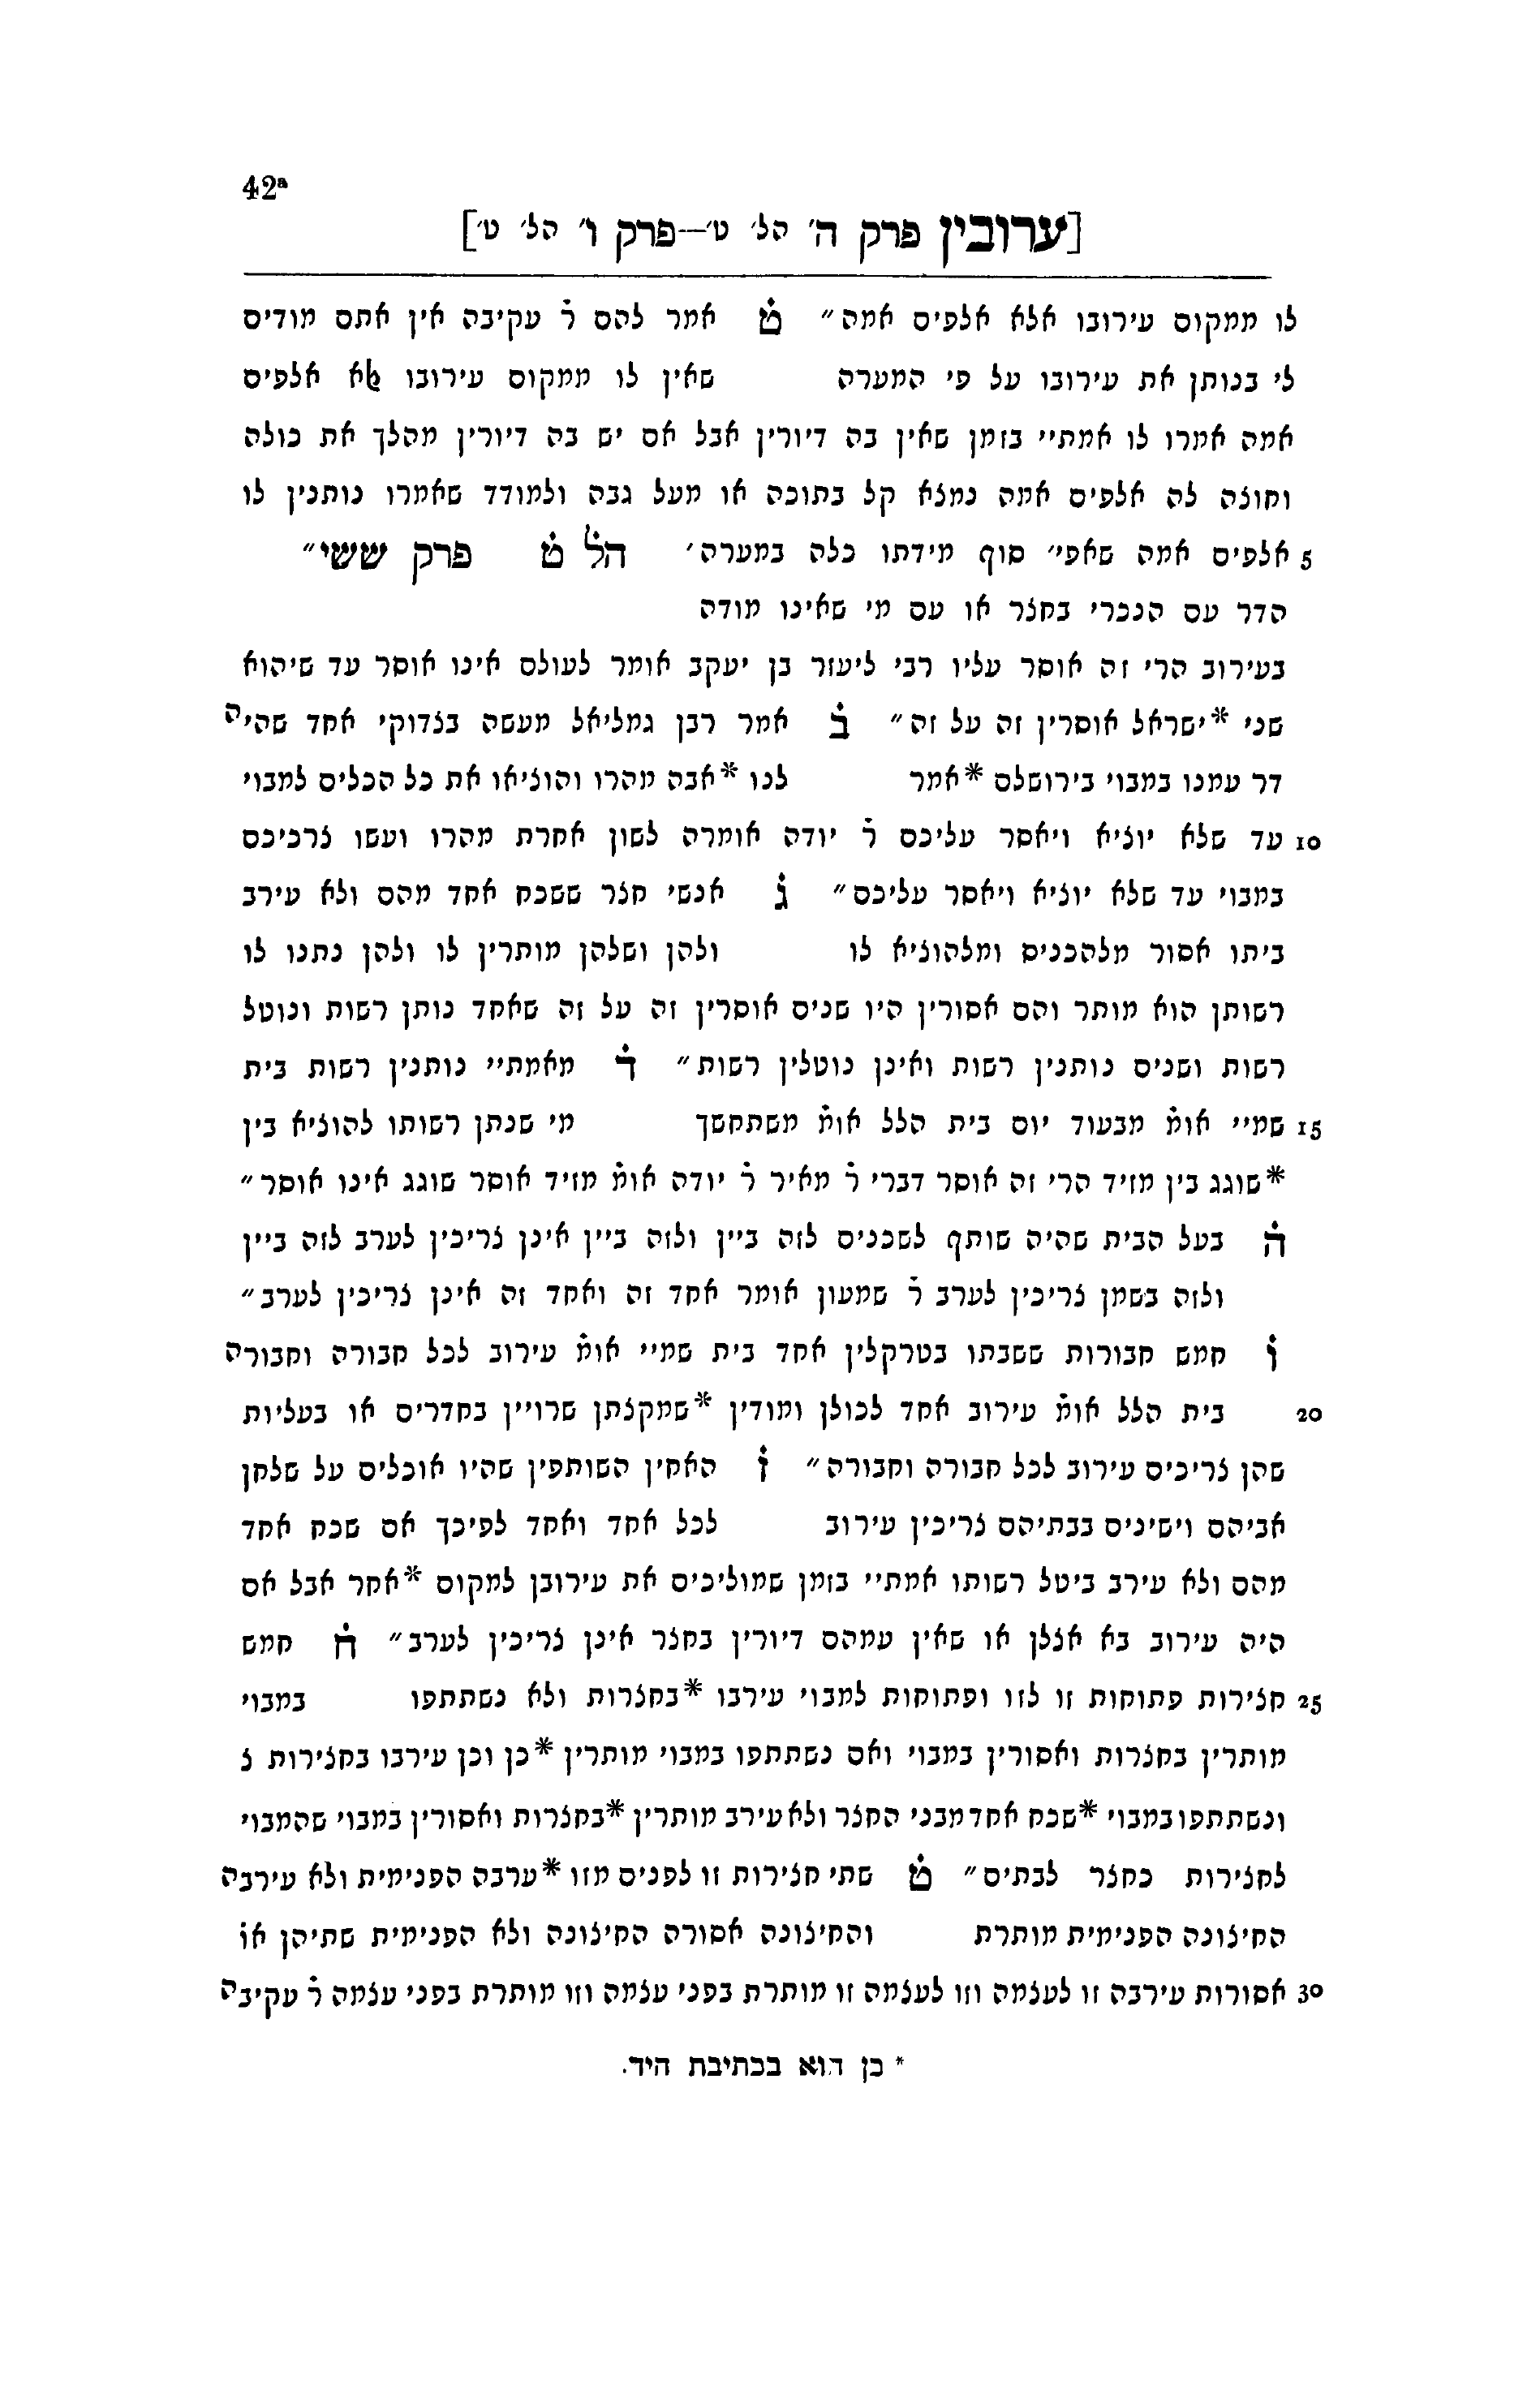 42ª
[ערובין פרק ה' הל' ט'—פרק ו' הל' ט']
לו ממקום עירובו אלא אלפים אמה״ ט̇ אמר להם ר̇ עקיבה אין אתם מודים
לי בנותן את עירובו על פי המערה שאין לו ממקום עירובו ﭏא אלפים
אמה אמרו לו אמתיי בזמן שאין בה דיורין אבל אם יש בה דיורין מהלך את כולה
וחוצה לה אלפים אמה נמצא קל בתוכה או מעל גבה ולמודד שאמרו נותנין לו
5 אלפים אמה שאפי' סוף מידתו כלה במערה' הל̇ ט̇ פרק ששי״
הדר עם הנכרי בחצר או עם מי שאינו מודה
בעירוב הרי זה אוסר עליו רבי ליעזר בן יעקב אומר לעולם אינו אוסר עד שיהוא
שני *ישראל אוסרין זה על זה״ ב̇ אמר רבן גמליאל מעשה בצדוקי אחד שהיה
דר עמנו במבוי בירושלם *אמר לנו *אבה מהרו והוציאו את כל הכלים למבוי
10 עד שלא יוציא ויאסר עליכם ר̇ יודה אומרה לשון אחרת מהרו ועשו צרכיכם
במבוי עד שלא יוציא ויאסר עליכם״ ג̇ אנשי חצר ששכח אחד מהם ולא עירב
ביתו אסור מלהכנים ומלהוציא לו ולהן ושלהן מותרין לו ולהן נתנו לו
רשותן הוא מותר והם אסורין היו שנים אוסרין זה על זה שאחד נותן רשות ונוטל
רשות ושנים נותנין רשות ואינן נוטלין רשות״ ד̇ מאמתיי נותנין רשות בית
15 שמיי אומ̇ מבעוד יום בית הלל אומ̇ משתחשך מי שנתן רשותו להוציא בין
*שוגג בין מזיד הרי זה אוסר דברי ר̇ מאיר ר̇ יודה אומ̇ מזיד אוסר שוגג אינו אוסר״
ה̇ בעל הבית שהיה שותף לשכנים לזה ביין ולזה ביין אינן צריכין לערב לזה ביין
ולזה בשמן צריכין לערב ר̇ שמעון אומר אחד זה ואחד זה אינן צריכין לערב״
ו̇ חמש חבורות ששבתו בטרקלין אחד בית שמיי אומ̇ עירוב לכל חבורה וחבורה
20 בית הלל אומ̇ עירוב אחד לכולן ומודין *שמקצתן שרויין בחדרים או בעליות
שהן צריכים עירוב לכל חבורה וחבורה״ ז̇ האחין השותפין שהיו אוכלים על שלחן
אביהם וישינים בבתיהם צריכין עירוב לכל אחד ואחד לפיכך אם שכח אחד
מהם ולא עירב ביטל רשותו אמתיי בזמן שמוליכים את עירובן למקום *אחר אבל אם
היה עירוב בא אצלן או שאין עמהם דיורין בחצר אינן צריכין לערב״ ח̇ חמש
25 חצירות פתוחות זו לזו ופתוחות למבוי עירבו *בחצרות ולא נשתתפו במבוי
מותרין בחצרות ואסורין במבוי ואם נשתתפו במבוי מותרין *כן וכן עירבו בחצירות צ
ונשתתפו במבוי *שכח אחד מבני החצר ולא עירב מותרין *בחצרות ואסורין במבוי שהמבוי
לחצירות כחצר לבתים״ ט̇ שתי חצירות זו לפנים מזו *ערבה הפנימית ולא עירבה
החיצונה הפנימית מותרת והחיצונה אסורה החיצונה ולא הפנימית שתיהן או̇
30 אסורות עירבה זו לעצמה וזו לעצמה זו מותרת בפני עצמה וזו מותרת בפני עצמה ר̇ עקיבה
* כן הוא בכתיבת היד.